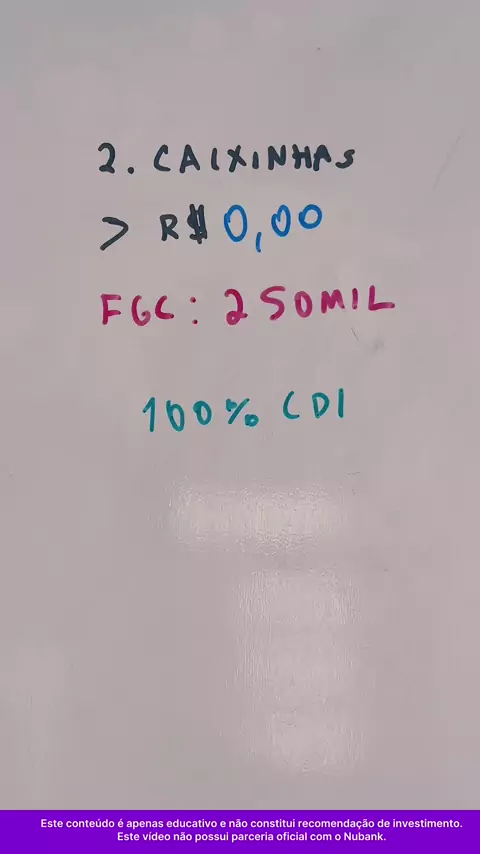 2. CAIXINHAS
> R$ 0,00
FGC: 250MIL
100% CDI
Este conteúdo é apenas educativo e não constitui recomendação de investimento.
Este vídeo não possui parceria oficial com o Nubank.